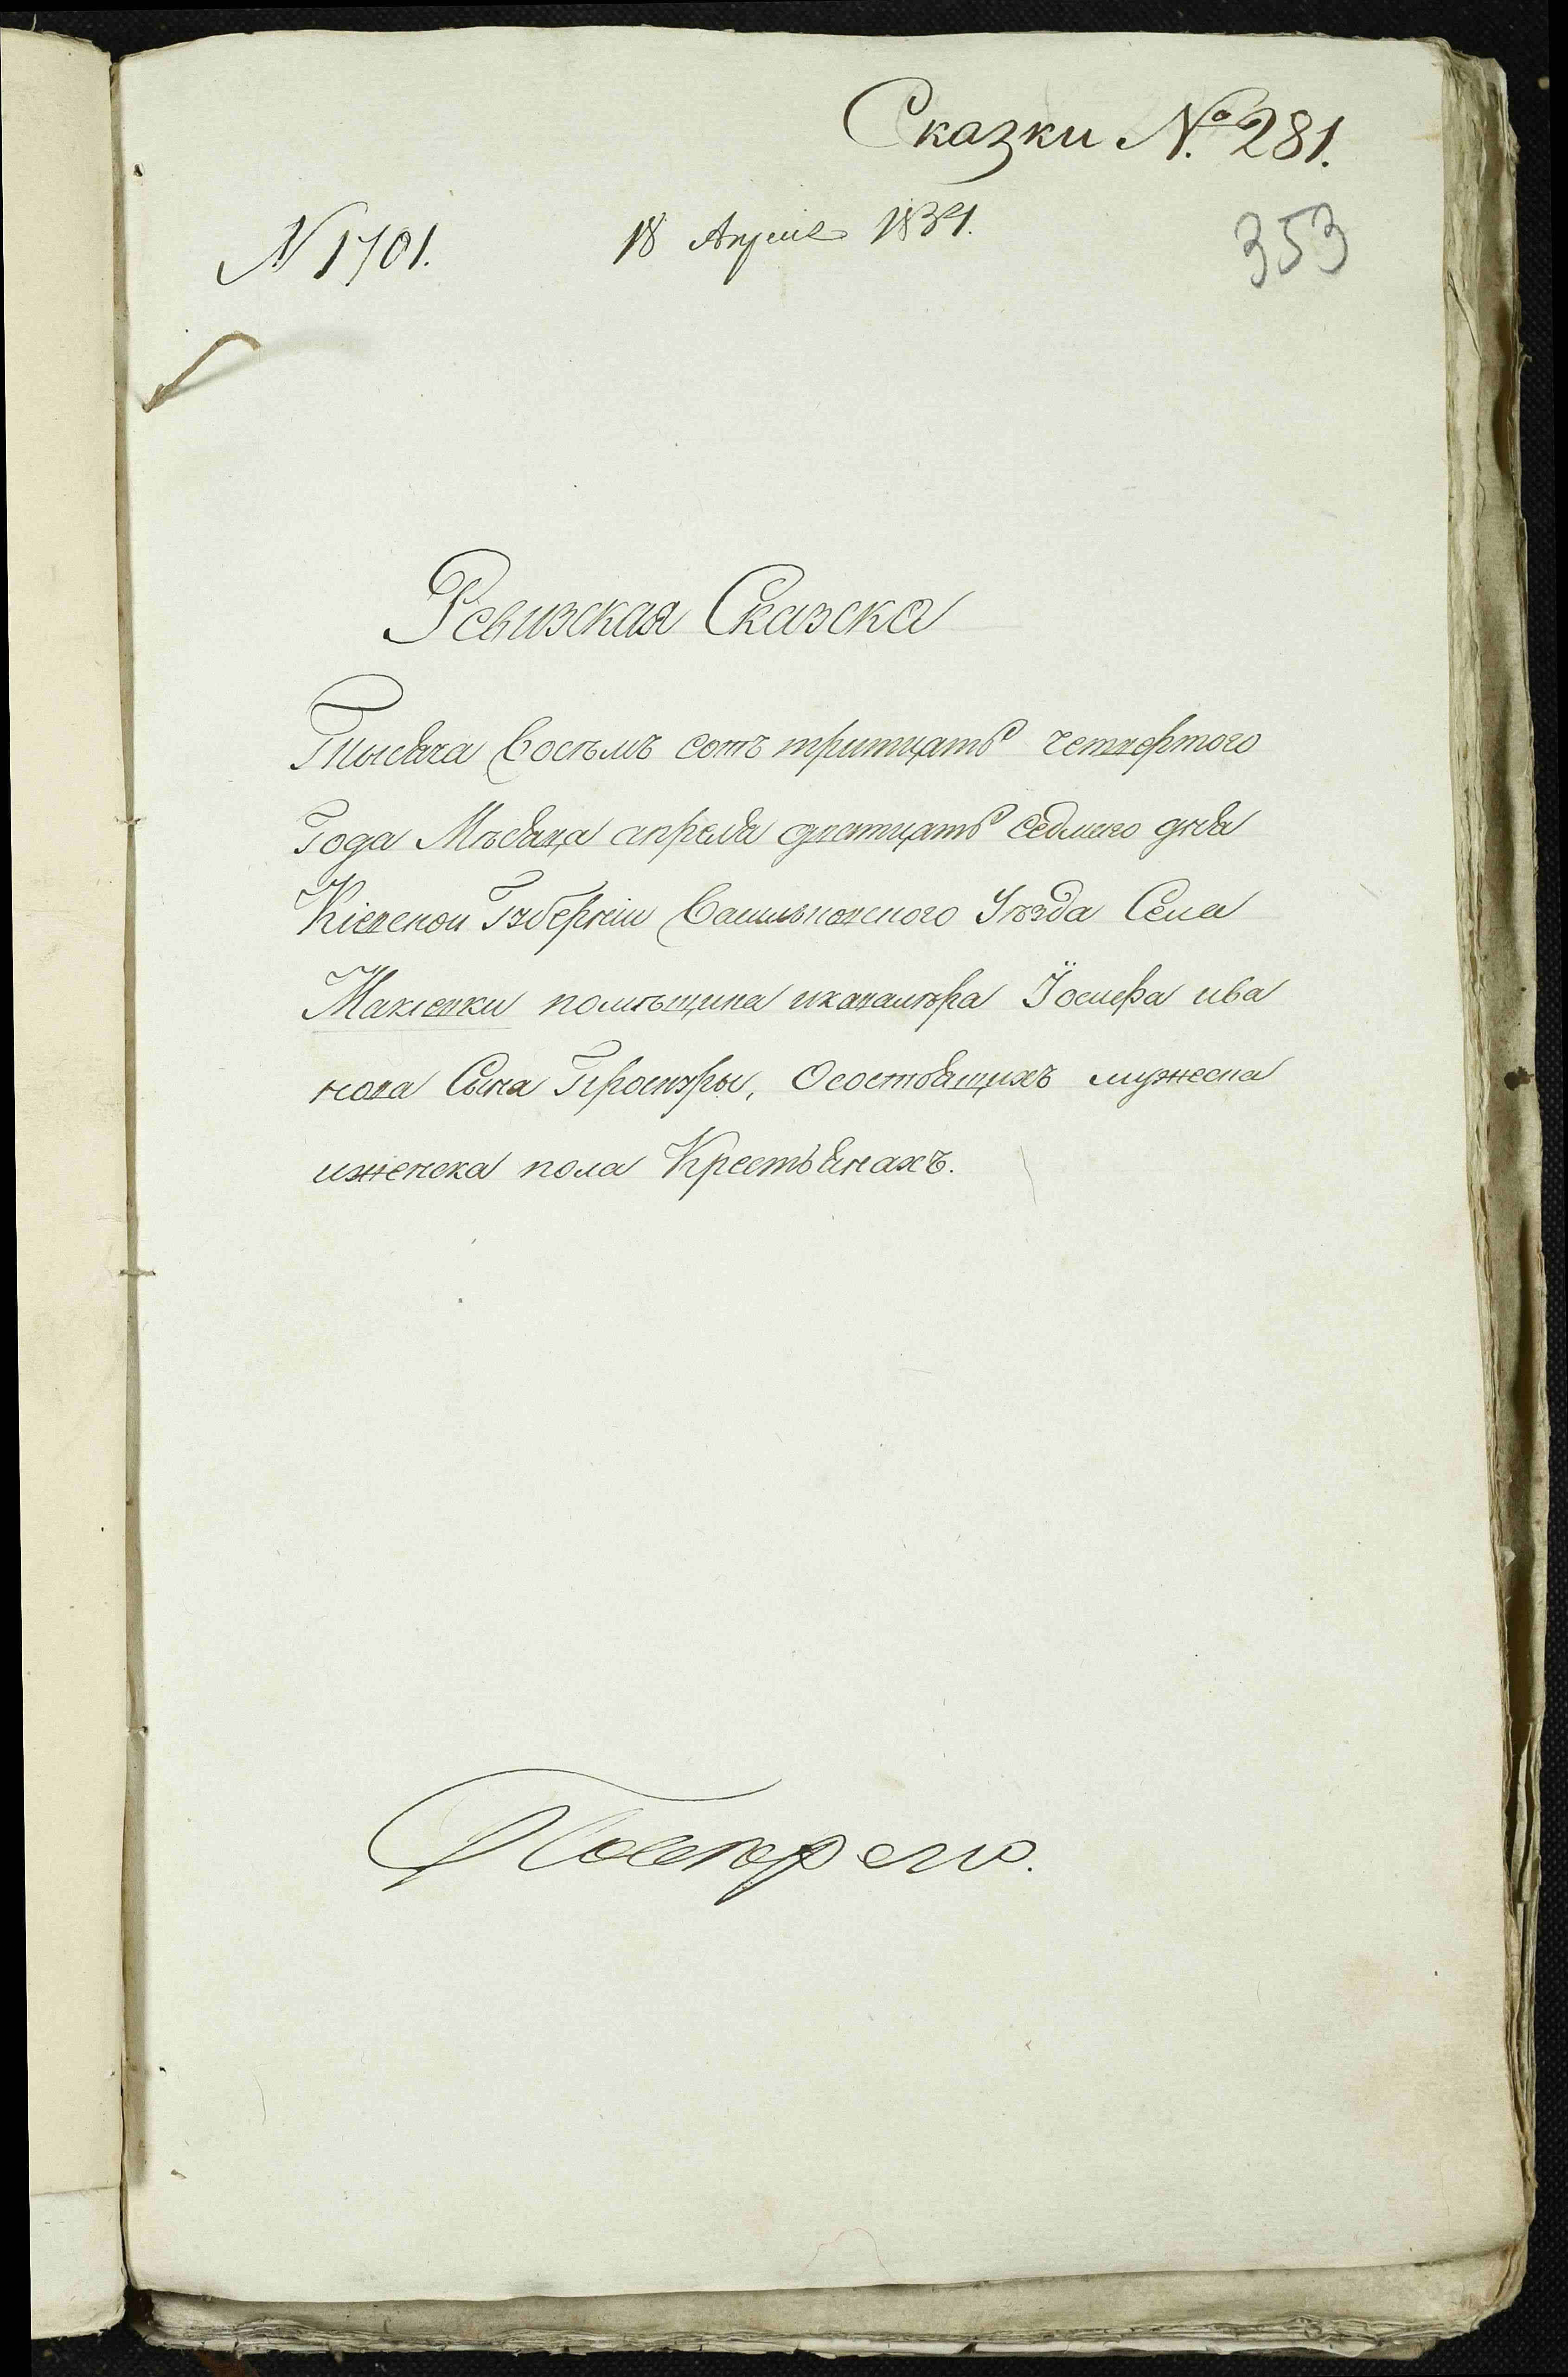 Сказки №. 281.
N 1701. 18 Апреля 1834. 353
Ревизская Сказска
Тысяча Восѣмъ сотъ тритцать четвертого
Года Мѣсяца апреля дватцать седмого дня
Кіевской Губерніи Василковского Уѣзда Села
Макіевки помѣщика икавалѣра Іосифа ива
нова Сына Проскуры, Осостоящихъ мужеска
иженска пола Крестьянахъ.